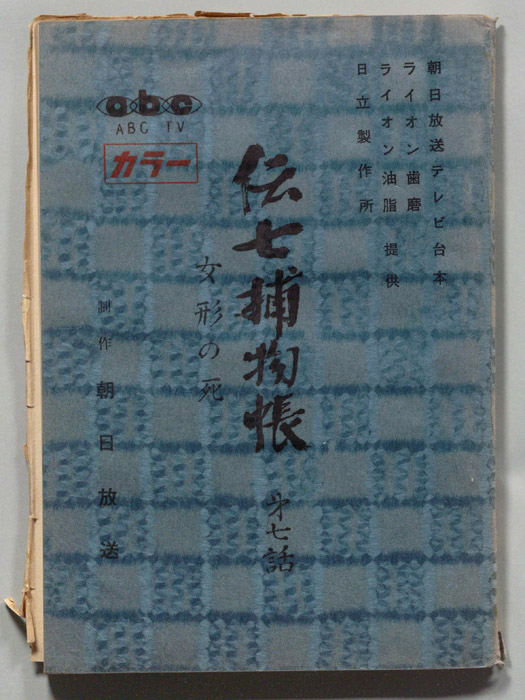 朝日放送テレビ台本
ライオン歯磨
ライオン油脂 提供
日立製作所
伝七捕物帳
才七話
女形の死
abc
ABC TV
カラー
制作 朝日放送